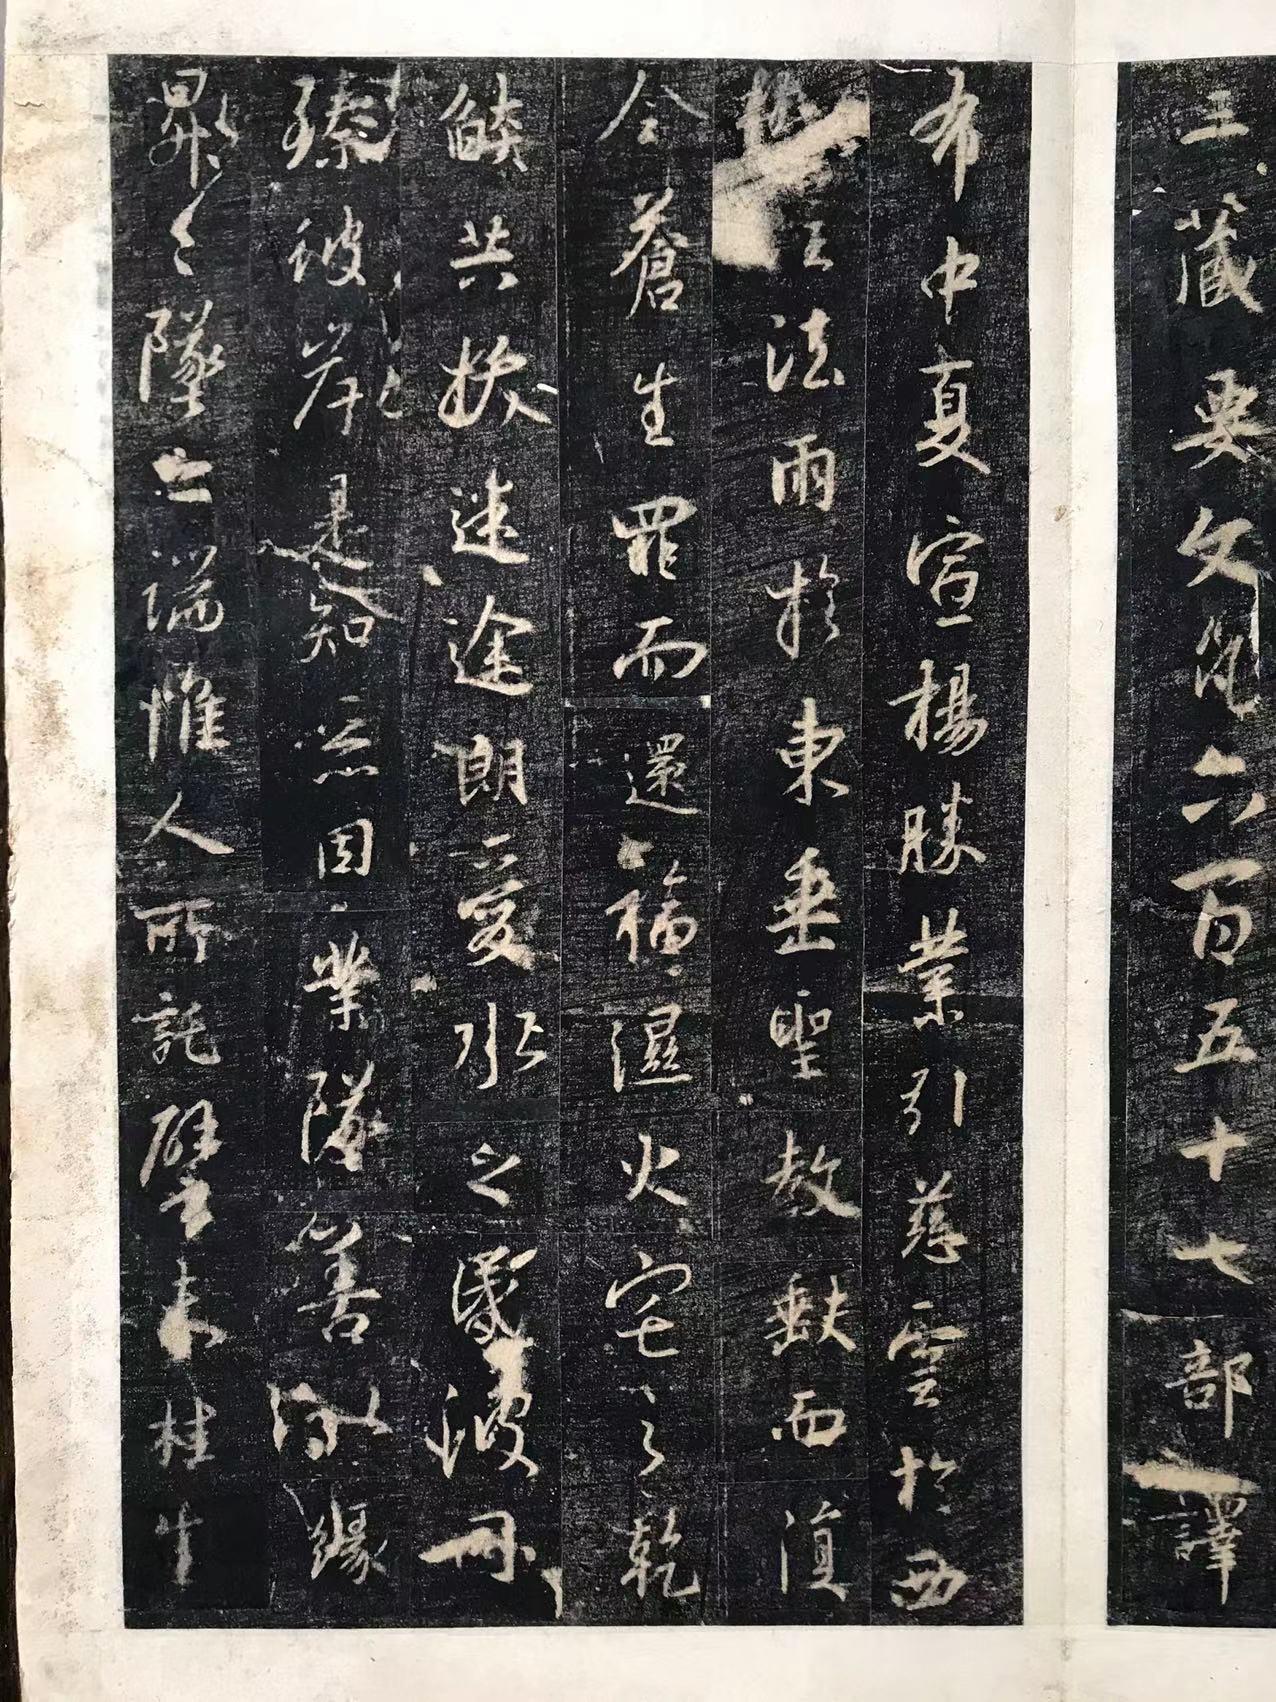 三藏要文凡六百五十七部譯
布中夏宣揚勝業引慈雲於西
極注法雨於東垂聖教缺而復
全蒼生罪而還福濕火宅之乾
焰共拔迷途朗愛水之昏波同
臻彼岸是知惡因業墜善以緣
昇々墜之端惟人所託譬夫桂生